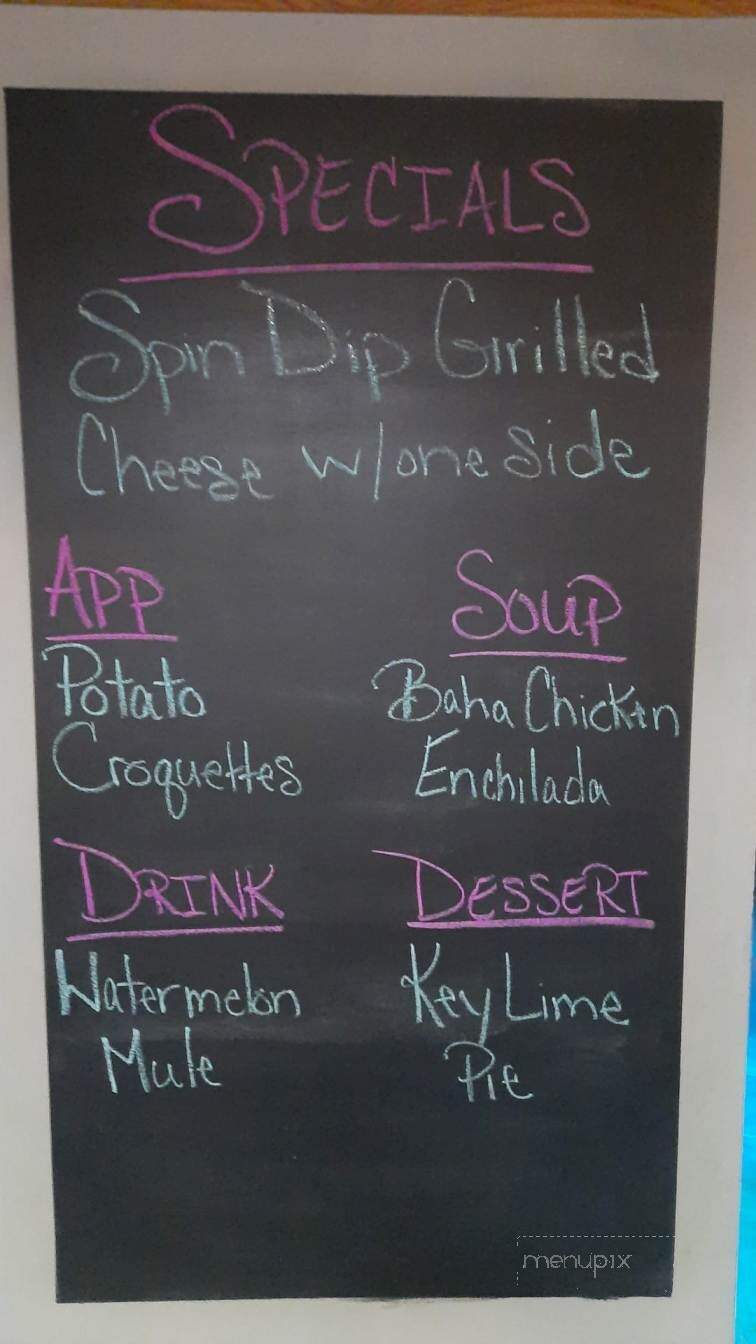 SPECIALS
Spin Dip Grilled
Cheese w/one side
APP
Potato
Croquettes
SOUP
Baha Chicken
Enchilada
DRINK
Watermelon
Mule
DESSERT
Key Lime
Pie
menupix